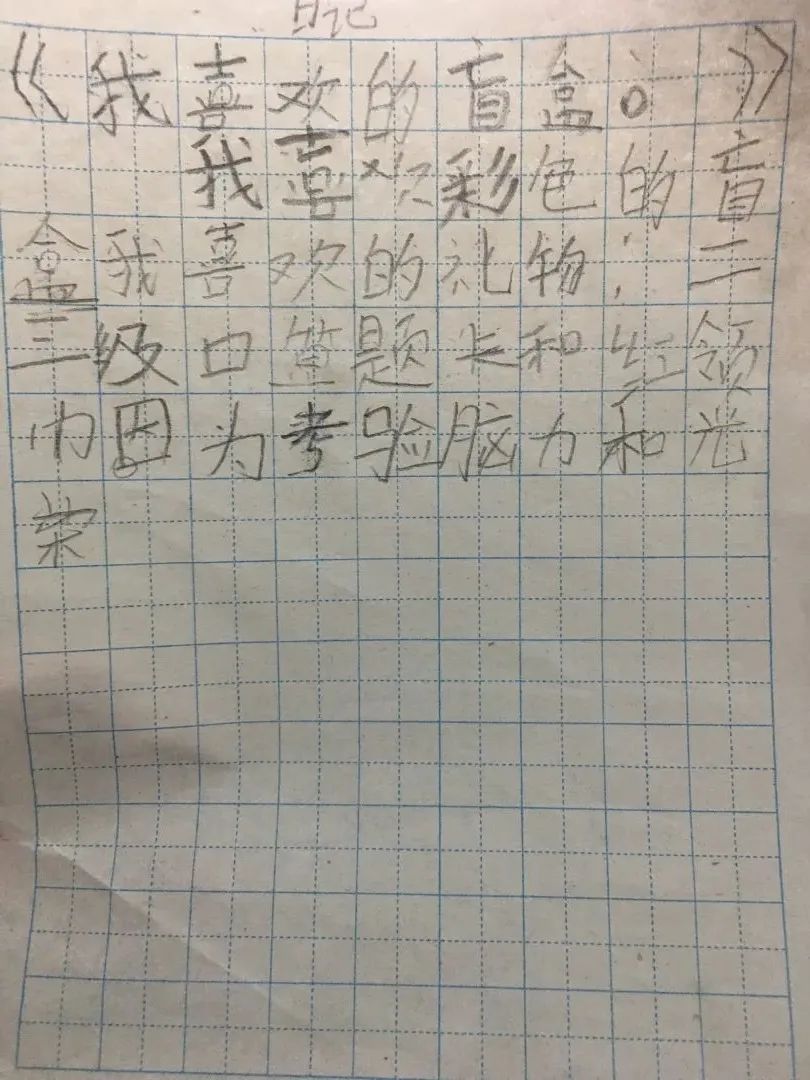 日记
《我喜欢的盲盒。》
我喜欢彩色的盲
盒我喜欢的礼物：二
三级口算题卡和红领
巾因为考验脑力和光
荣